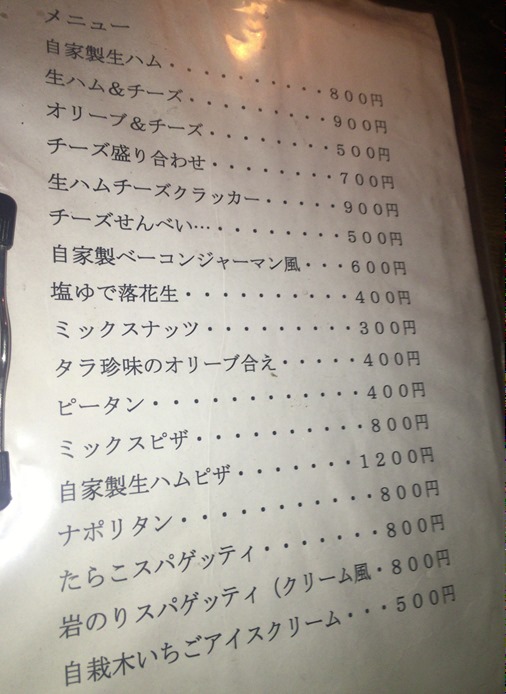 メニュー
自家製生ハム・・・・・・・・・・８００円
生ハム＆チーズ・・・・・・・・・９００円
オリーブ＆チーズ・・・・・・・・５００円
チーズ盛り合わせ・・・・・・・・７００円
生ハムチーズクラッカー・・・・・９００円
チーズせんべい…・・・・・・・・５００円
自家製ベーコンジャーマン風・・・６００円
塩ゆで落花生・・・・・・・・・・４００円
ミックスナッツ・・・・・・・・・３００円
タラ珍味のオリーブ合え・・・・・４００円
ピータン・・・・・・・・・・・・４００円
ミックスピザ・・・・・・・・・・８００円
自家製生ハムピザ・・・・・・・１２００円
ナポリタン・・・・・・・・・・・８００円
たらこスパゲッティ・・・・・・・８００円
岩のりスパゲッティ（クリーム風・８００円
自栽木いちごアイスクリーム・・・５００円